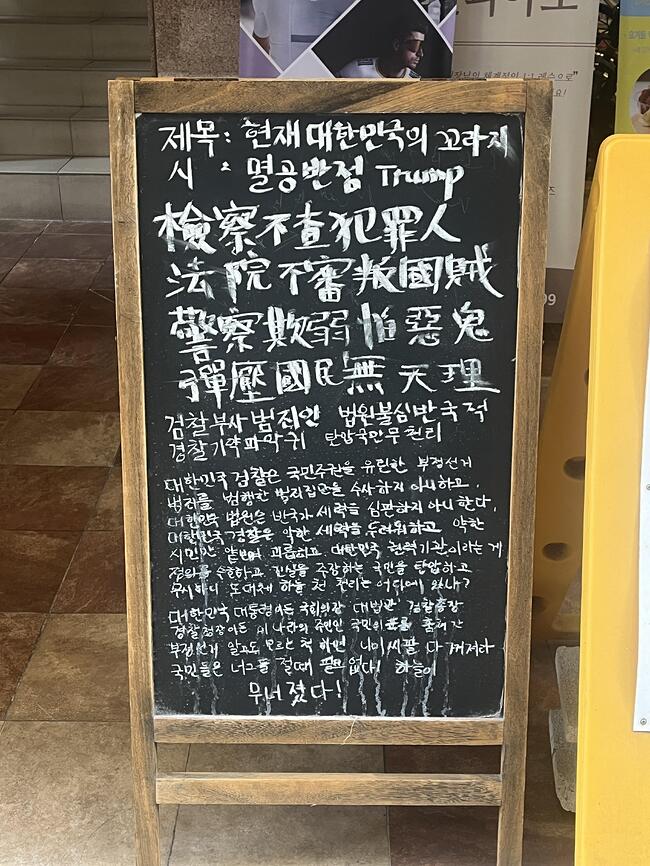 장님의 체계적인 1:1 레슨으로"
제목: 현재 대한민국의 꼬라지
시 : 멸공반점 Trump
檢察不査犯罪人
法院不審叛國賊
警察欺弱怕惡鬼
彈壓國民無天理
검찰부사범죄인 법원불심반국적
경찰기약파악귀 탄압국민무천리
대한민국 검찰은 국민주권을 유린한 부정선거
범죄를 범행한 범죄집단을 수사하지 아니하고,
대한민국 법원은 반국가 세력을 심판하지 아니 한다.
대한민국 경찰은 악한 세력을 두려워하고 약한
시민만 괴롭히고 대한민국 권력기관이라는 게
정의를 수호하고 진실을 주장하는 국민을 탄압하고
무시하니 도대체 하늘 천리는 어디에 있나?
대한민국 대통령이든 국회의장 대법관 검찰총장
경찰청장이든 이 나라의 주인인 국민의 표를 훔쳐간
부정선거 알고도 모르는 척 하면 니미씨팔 다 꺼져라
국민들은 너그들 절때 필요없다! 하늘이
무너졌다!
99